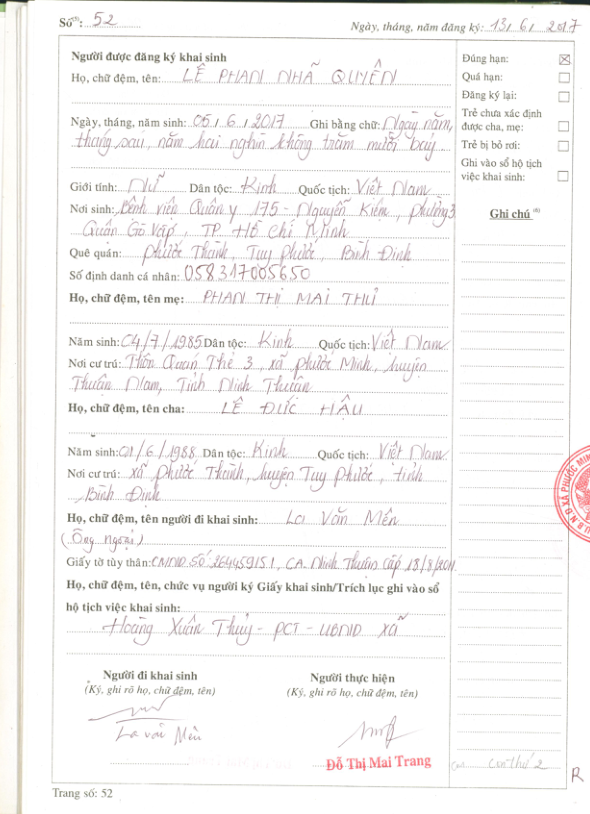 Số⁽⁵⁾: 52
Ngày, tháng, năm đăng ký: 13/6/2017
Người được đăng ký khai sinh
Họ, chữ đệm, tên: LÊ PHAN NHÃ QUYÊN
Ngày, tháng, năm sinh: 05/6/2017 Ghi bằng chữ: Ngày năm,
tháng sáu, năm hai nghìn không trăm mười bảy
Giới tính: Nữ Dân tộc: Kinh Quốc tịch: Việt Nam
Nơi sinh: Bệnh viện Quân y 175 - Nguyễn Kiệm, phường 3
Quận Gò Vấp, TP Hồ Chí Minh
Quê quán: Phước Thành, Tuy Phước, Bình Định
Số định danh cá nhân: 058317005650
Họ, chữ đệm, tên mẹ: PHAN THỊ MAI THƯ
Năm sinh: 04/7/1985 Dân tộc: Kinh Quốc tịch: Việt Nam
Nơi cư trú: Thôn Quán Thẻ 3, xã Phước Minh, huyện
Thuận Nam, Tỉnh Ninh Thuận
Họ, chữ đệm, tên cha: LÊ ĐỨC HẬU
Năm sinh: 01/6/1988 Dân tộc: Kinh Quốc tịch: Việt Nam
Nơi cư trú: xã Phước Thành, huyện Tuy Phước, tỉnh
Bình Định
Họ, chữ đệm, tên người đi khai sinh: La Văn Mến
(Ông ngoại)
Giấy tờ tùy thân: CMND số 264459151, CA. Ninh Thuận cấp 18/8/2011
Họ, chữ đệm, tên, chức vụ người ký Giấy khai sinh/Trích lục ghi vào sổ
hộ tịch việc khai sinh:
Hoàng Xuân Thủy - PCT - UBND xã
Người đi khai sinh
(Ký, ghi rõ họ, chữ đệm, tên)
La văn Mến
Người thực hiện
(Ký, ghi rõ họ, chữ đệm, tên)
Đỗ Thị Mai Trang
Đúng hạn: ☒
Quá hạn: ☐
Đăng ký lại: ☐
Trẻ chưa xác định
được cha, mẹ: ☐
Trẻ bị bỏ rơi: ☐
Ghi vào sổ hộ tịch
việc khai sinh: ☐
Ghi chú ⁽⁶⁾
Con thứ 2
R
U.B.N.D XÃ PHƯỚC MINH
Trang số: 52